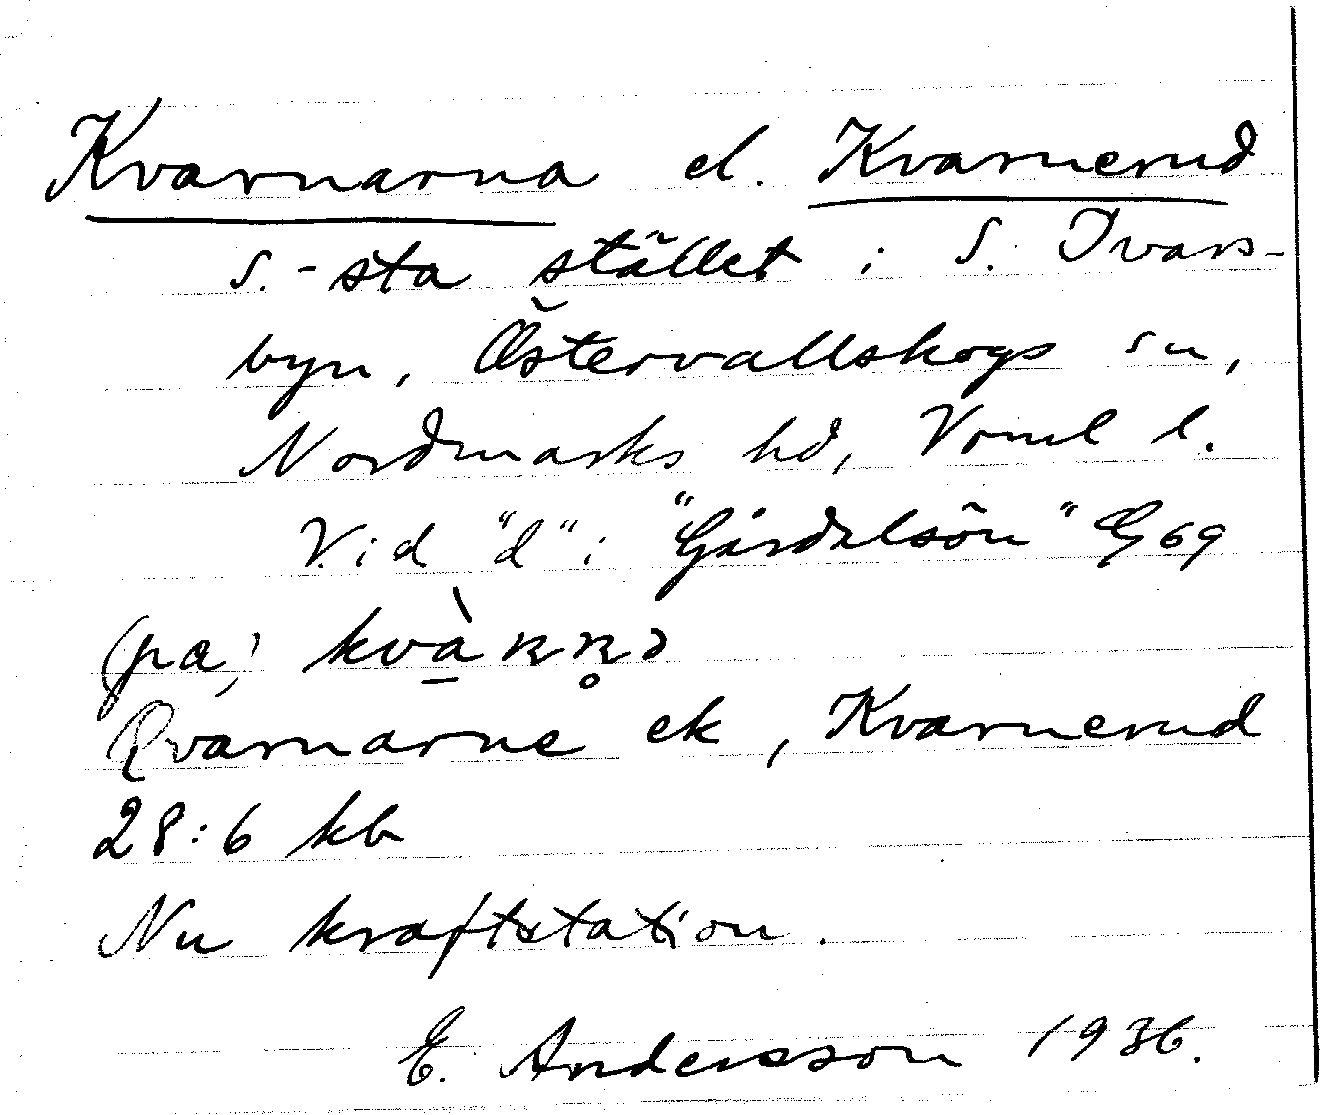 Kvarnarna el. Kvarnerud
S.-sta stället i S. Ivars-
byn, Östervallskogs sn,
Nordmarks hd, Vrml l.
Vid "d" i "Gårdalsön" G 69
(pa)
Qvarnarne ek, Kvarnerud
28:6 kb
Nu kraftstation.
E. Andersson 1936.